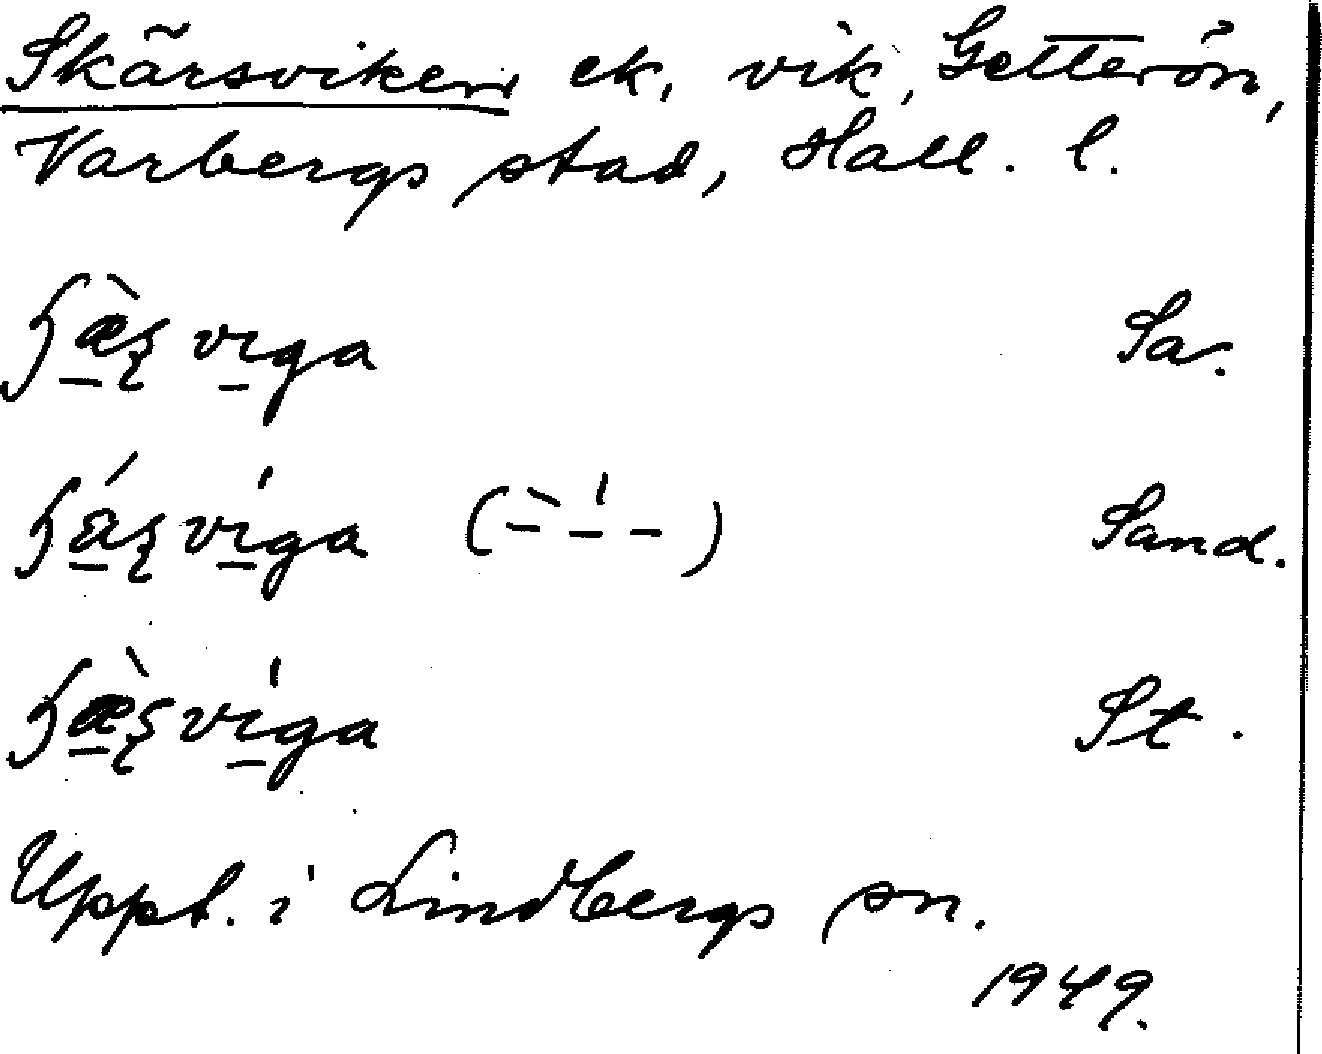 Skärsviken ek, vik, Getterön,
Varbergs stad, Hall. l.
ɧæ̠̀ʂvi̠ga Sa.
ɧä̠́ʂvi̠̍ga (-̀ -̍ -) Sand.
ɧæ̠̀ʂvi̠̍ga St.
Uppt. i Lindbergs sn.
1949.